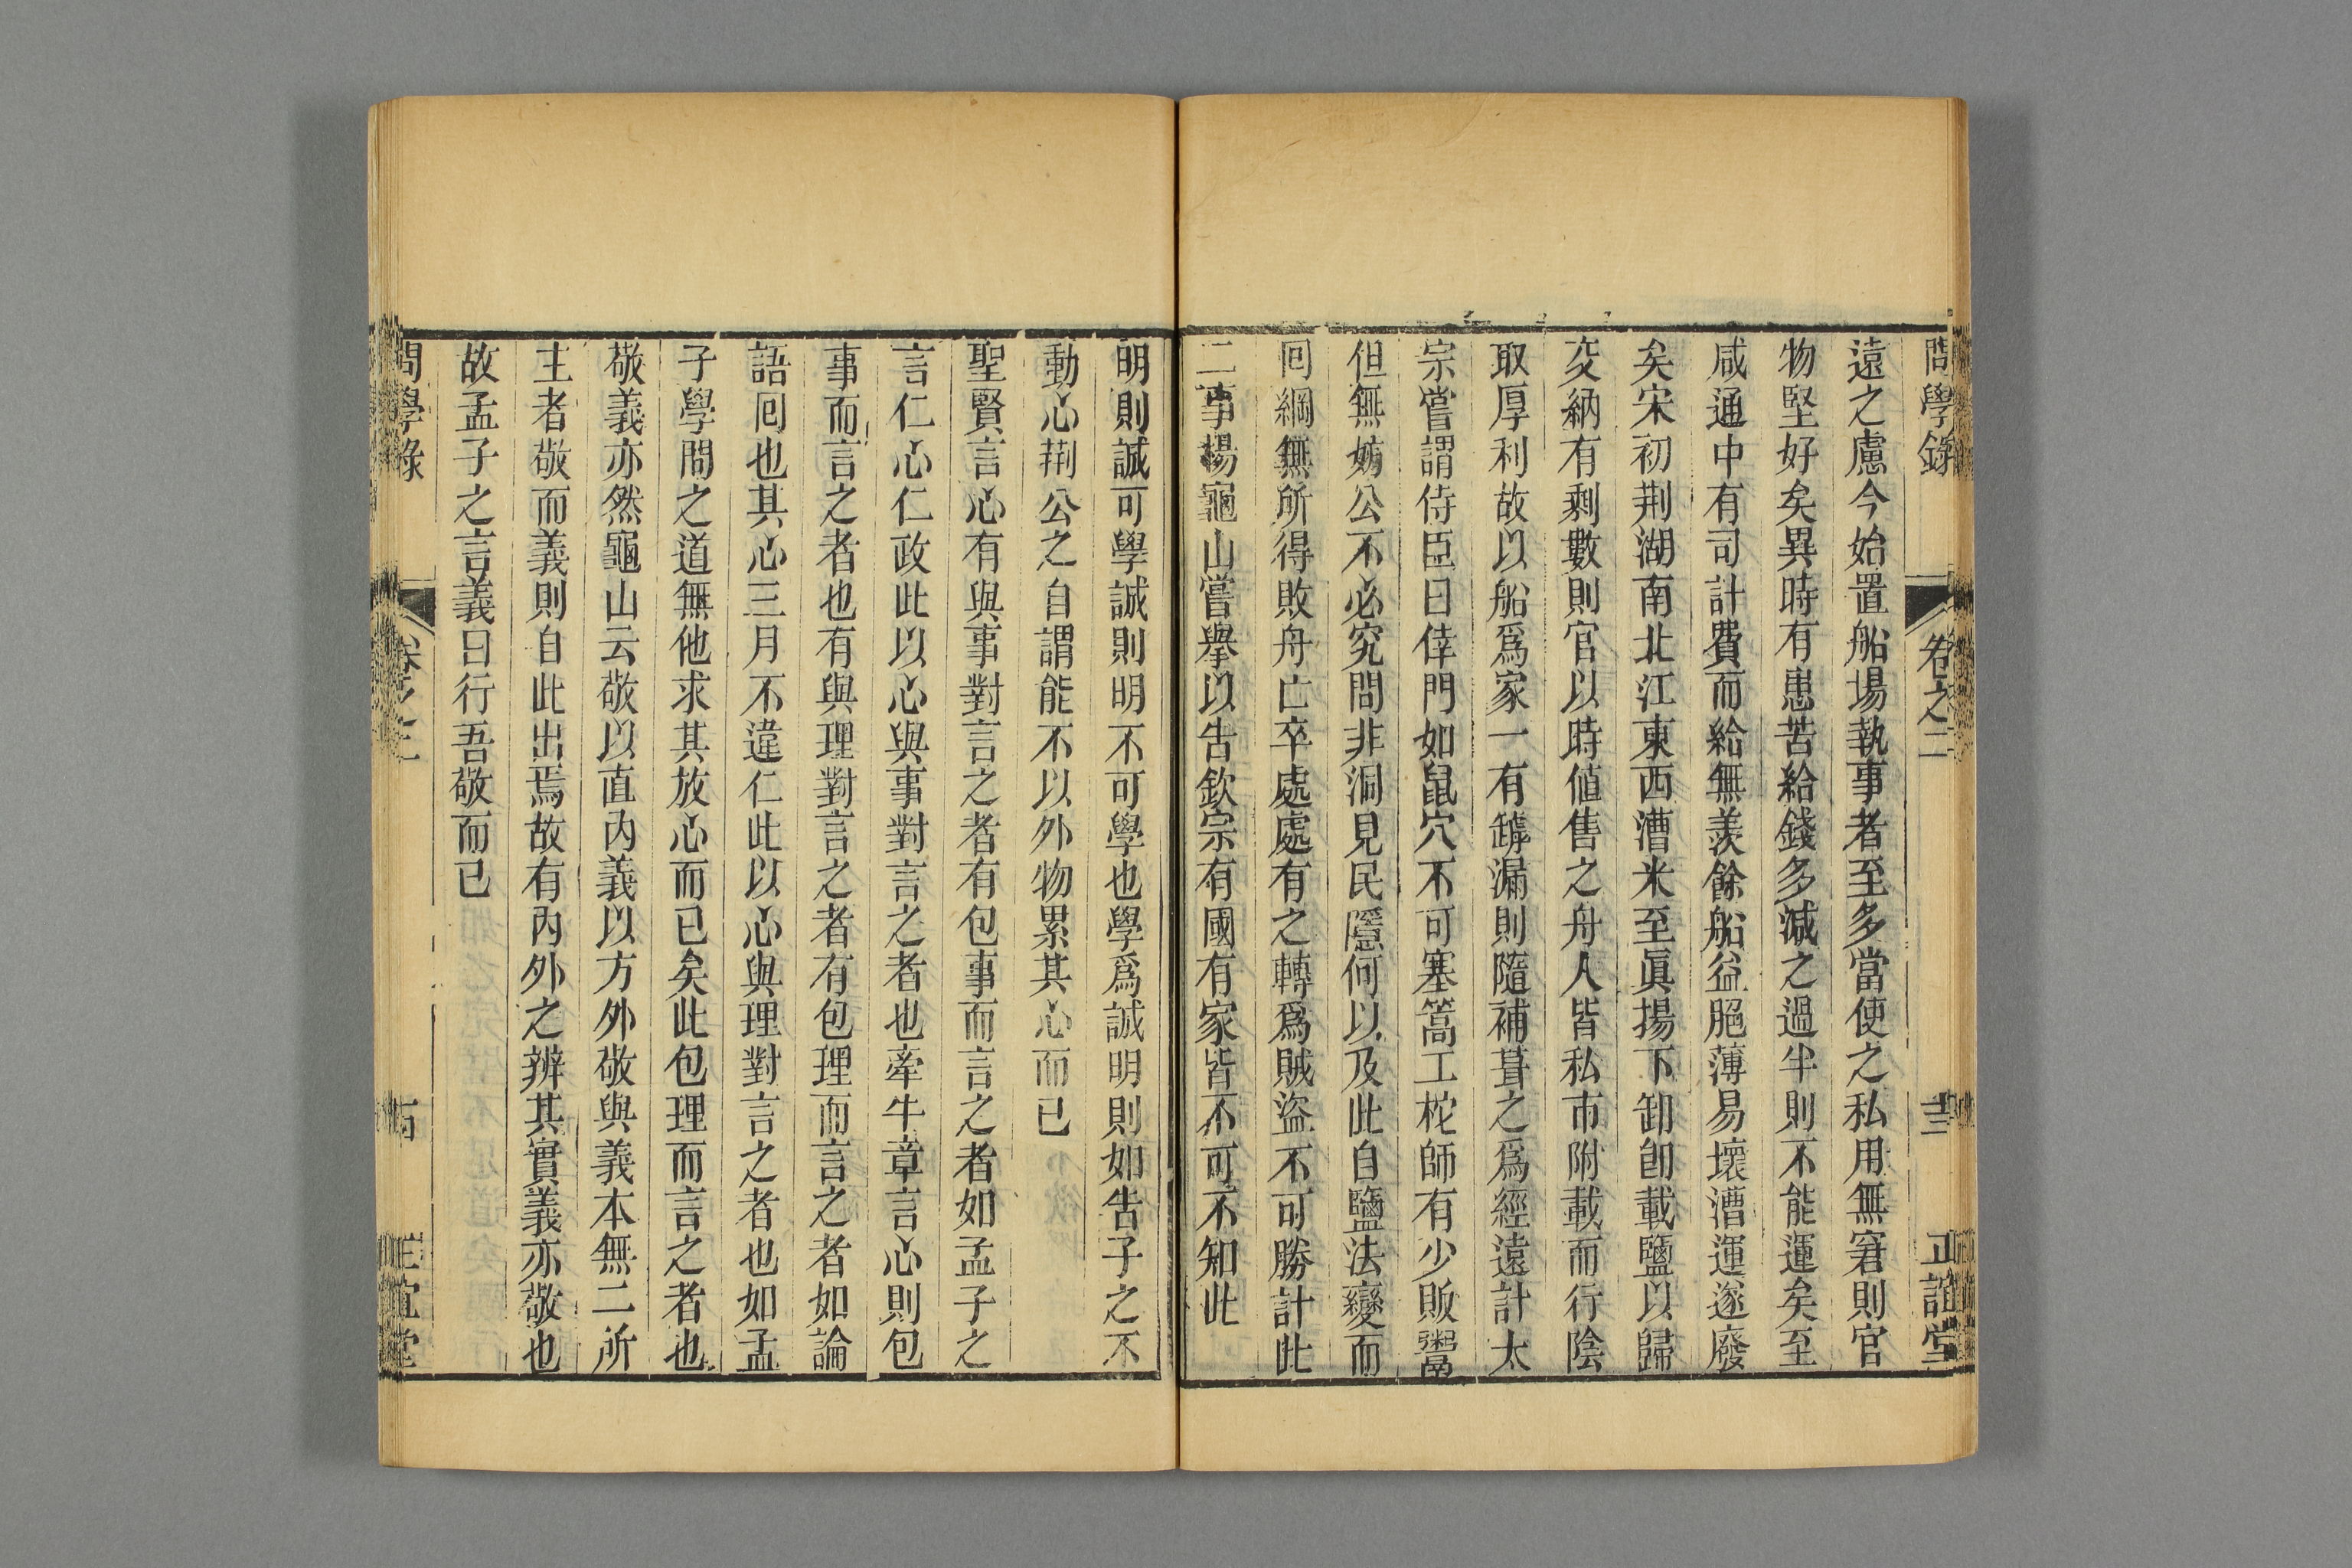 問學錄 卷之二 十三 正誼堂
遠之慮今始置船場執事者至多當使之私用無窘則官
物堅好矣異時有患苦給錢多減之過半則不能運矣至
咸通中有司計費而給無羨餘船益脆薄易壞漕運遂廢
矣宋初荆湖南北江東西漕米至眞揚下卸卽載鹽以歸
交納有剩數則官以時値售之舟人皆私市附載而行陰
取厚利故以船爲家一有罅漏則隨補葺之爲經遠計太
宗嘗謂侍臣曰倖門如鼠穴不可塞篙工柁師有少販鬻
但無妨公不必究問非洞見民隱何以及此自鹽法變而
囘綱無所得敗舟亡卒處處有之轉爲賊盜不可勝計此
二事楊龜山嘗擧以告欽宗有國有家皆不可不知此
明則誠可學誠則明不可學也學爲誠明則如告子之不
動心荆公之自謂能不以外物累其心而已
聖賢言心有與事對言之者有包事而言之者如孟子之
言仁心仁政此以心與事對言之者也牽牛章言心則包
事而言之者也有與理對言之者有包理而言之者如論
語囘也其心三月不違仁此以心與理對言之者也如孟
子學問之道無他求其放心而已矣此包理而言之者也
敬義亦然龜山云敬以直內義以方外敬與義本無二所
主者敬而義則自此出焉故有內外之辨其實義亦敬也
故孟子之言義曰行吾敬而已
問學錄 卷之二 十四 正誼堂